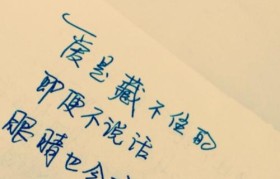 爱是藏不住的
即便不说话
眼睛也会